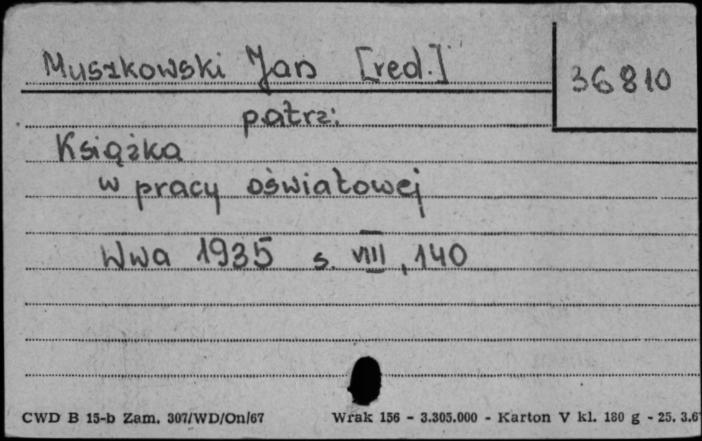 Muszkowski Jan [red.]
36810
patrz:
Książka
w pracy oświatowej
Wwa 1935 s. VIII, 140
CWD B 15-b Zam. 307/WD/On/67
Wrak 156 - 3.305.000 - Karton V kl. 180 g - 25. 3.6